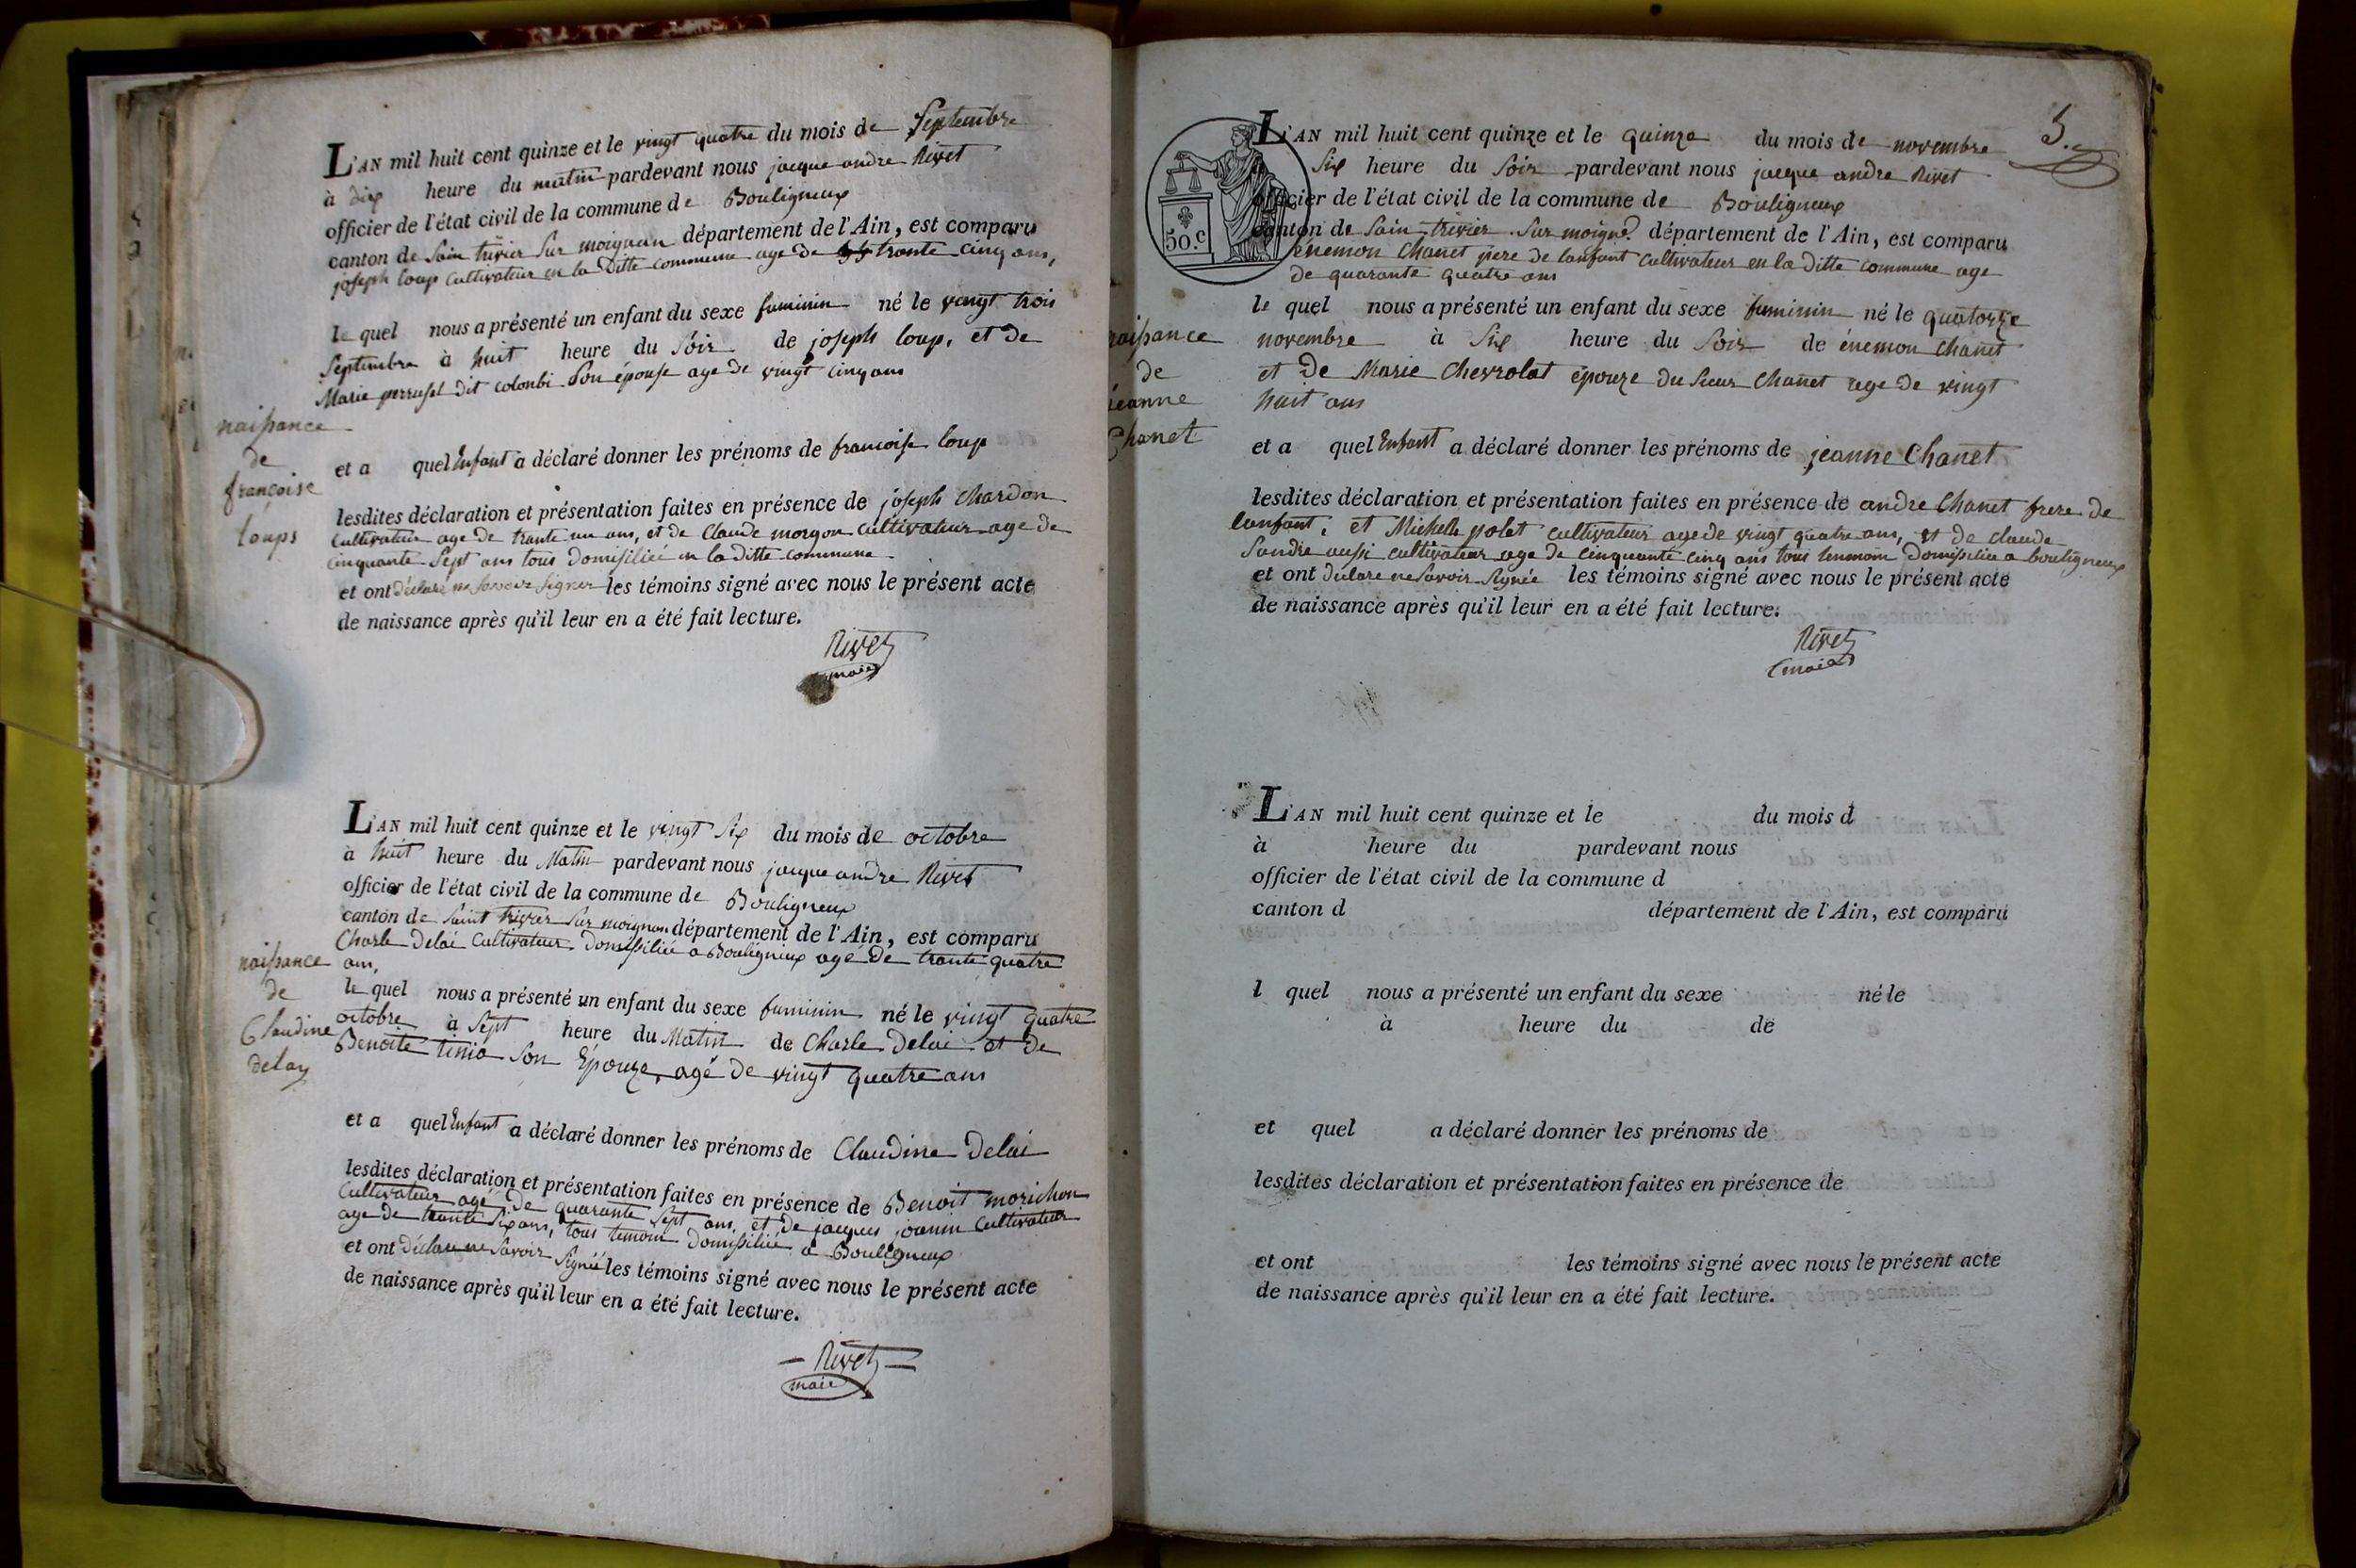 L'AN mil huit cent quinze et le vingt quatre du mois de Septembre
à dix heure du matin pardevant nous jacque andre Rivet
officier de l'état civil de la commune de Bouligneux
canton de Sain trivier Sur moignan département de l'Ain, est comparu
joseph loup cultivateur en la Ditte commune age de trante cinq ans,
le quel nous a présenté un enfant du sexe faminin né le vingt trois
Septembre à huit heure du Soir de joseph loup, et de
Marie perrusel dit colonbi Son épouse age de vingt cinq ans
naissance
de
françoise
loups
et a quel Enfant a déclaré donner les prénoms de francoise loup
lesdites déclaration et présentation faites en présence de joseph Chardon
Cultivateur age de trante un ans, et de Claude morgon cultivateur age de
cinquante Sept ans tous domisiliéé en la ditte commune
et ont déclaré ne Savoir Signer les témoins signé avec nous le présent acte
de naissance après qu'il leur en a été fait lecture.
Rivet
maire
L'AN mil huit cent quinze et le vingt Six du mois de octobre
à huit heure du Matin pardevant nous jacque andre Rivet
officier de l'état civil de la commune de Bouligneux
canton de Saint trivier Sur moignan département de l'Ain, est comparu
Charle Delai Cultivateur Domisiliéé a Bouligneux agé de trante quatre
ans,
le quel nous a présenté un enfant du sexe faminin né le vingt quatre
octobre à Sept heure du Matin de Charle Delai et de
Benoite tinio Son Epouze, agé de vingt quatre ans
naissance
de
Claudine
delay
et a quel Enfant a déclaré donner les prénoms de Claudine Delai
lesdites déclaration et présentation faites en présence de Benoit morichon
Cultivateur agé De quarante Sept ans, et de jacques joanin Cultivateur
age de trante Six ans, tous temoin domisiliéé a Bouligneux
et ont déclare ne Savoir Signéé les témoins signé avec nous le présent acte
de naissance après qu'il leur en a été fait lecture.
Rivet
maie
5.
L'AN mil huit cent quinze et le quinze du mois de novembre
Six heure du Soir pardevant nous jacque andre Rivet
officier de l'état civil de la commune de Bouligneux
canton de Sain trivier Sur moigne? département de l'Ain, est comparu
énemon Chanet pere de lanfant cultivateur en la ditte commune age
de quarante quatre ans
50.c
le quel nous a présenté un enfant du sexe faminin né le quatorze
novembre à Six heure du Soir de énemon Chanet
et De Marie Chevrolat épouze du Sieur Chanet age de vingt
huit ans
naissance
de
jeanne
Chanet
et a quel Enfant a déclaré donner les prénoms de jeanne Chanet
lesdites déclaration et présentation faites en présence de andre Chanet frere de
lanfant, et Michelle polet cultivateur age de vingt quatre ans, et de claude
Sandre aussi cultivateur age de cinquante cinq ans tous temoin domisiliée a bouligneux
et ont déclare ne Savoir Signée les témoins signé avec nous le présent acte
de naissance après qu'il leur en a été fait lecture.
Rivet
maie
L'AN mil huit cent quinze et le du mois d
à heure du pardevant nous
officier de l'état civil de la commune d
canton d département de l'Ain, est comparu
l quel nous a présenté un enfant du sexe né le
à heure du de
et quel a déclaré donner les prénoms de
lesdites déclaration et présentation faites en présence de
et ont les témoins signé avec nous le présent acte
de naissance après qu'il leur en a été fait lecture.